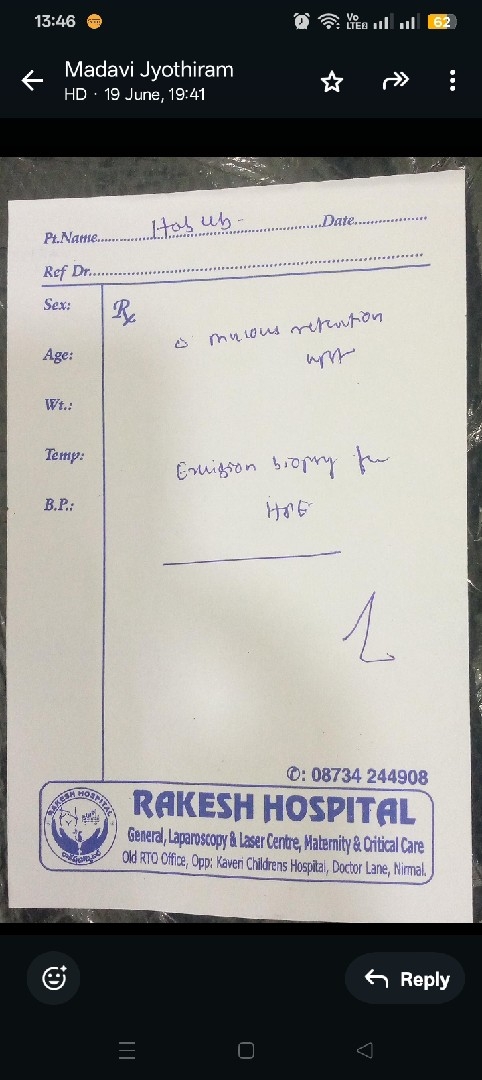 13:46
Vo
LTE2
62
Madavi Jyothiram
HD · 19 June, 19:41
Pt.Name.......... Date..........
Ref Dr..........
Sex:
Rx
mucous retention
Age:
Wt.:
Temp:
biopsy for
B.P.:
HPE
✆: 08734 244908
RAKESH HOSPITAL
RAKESH HOSPITAL
General, Laparoscopy & Laser Centre, Maternity & Critical Care
Old RTO Office, Opp: Kaveri Childrens Hospital, Doctor Lane, Nirmal.
Reply